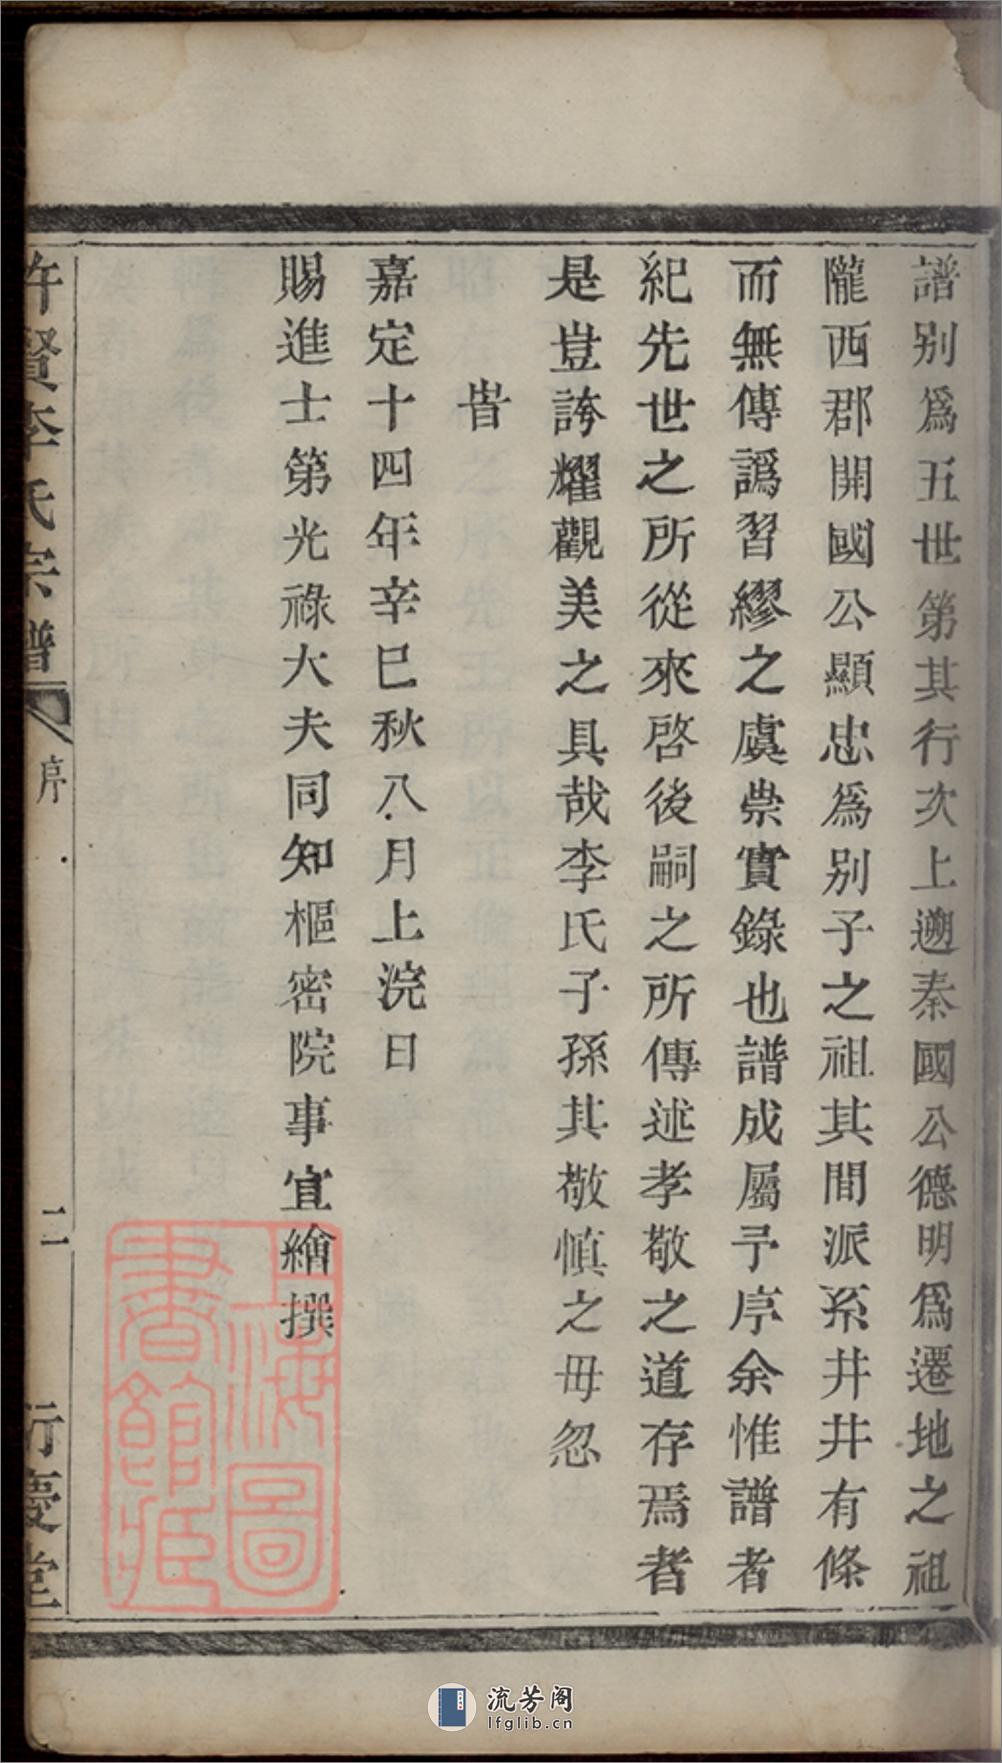 譜别爲五世第其行次上遡秦國公德明爲遷地之祖
隴西郡開國公顯忠爲别子之祖其間派系井井有條
而無傳譌習繆之虞祟實錄也譜成屬予序余惟譜者
紀先世之所從來啓後嗣之所傳述孝敬之道存焉者
是豈誇耀觀美之具哉李氏子孫其敬慎之毋忽
旹
嘉定十四年辛巳秋八月上浣日
賜進士第光祿大夫同知樞密院事宣繒撰
許賢李氏宗譜
序
二
衍慶堂
上海圖書館藏
流芳阁
lfglib.cn